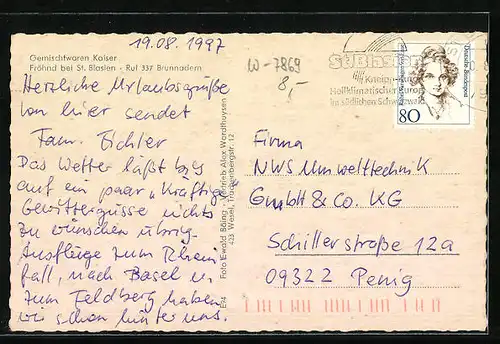 19.08.1997
Gemischtwaren Kaiser
Fröhnd bei St. Blasien - Ruf 337 Brunnadern
Herzliche Urlaubsgrüße
von hier sendet
Fam. Eichler
Das Wetter läßt bis
auf ein paar kräftige
Gewittergüsse nichts
zu wünschen übrig.
Ausflüge zum Rhein-
fall, nach Basel u.
zum Feldberg haben
wir schon hinter uns.
Foto Ewald Böing - Vertrieb Alex Wardthuysen
423 Wesel, Trappenbergstr. 12
E/4
W-7869
8,-
St. Blasien
Kneipp-Kurort
Heilklimatischer Kurort
im südlichen Schwarzwald
Deutsche Bundespost
80
Firma
NWS Umwelttechnik
GmbH & Co. KG
Schillerstraße 12a
09322 Penig